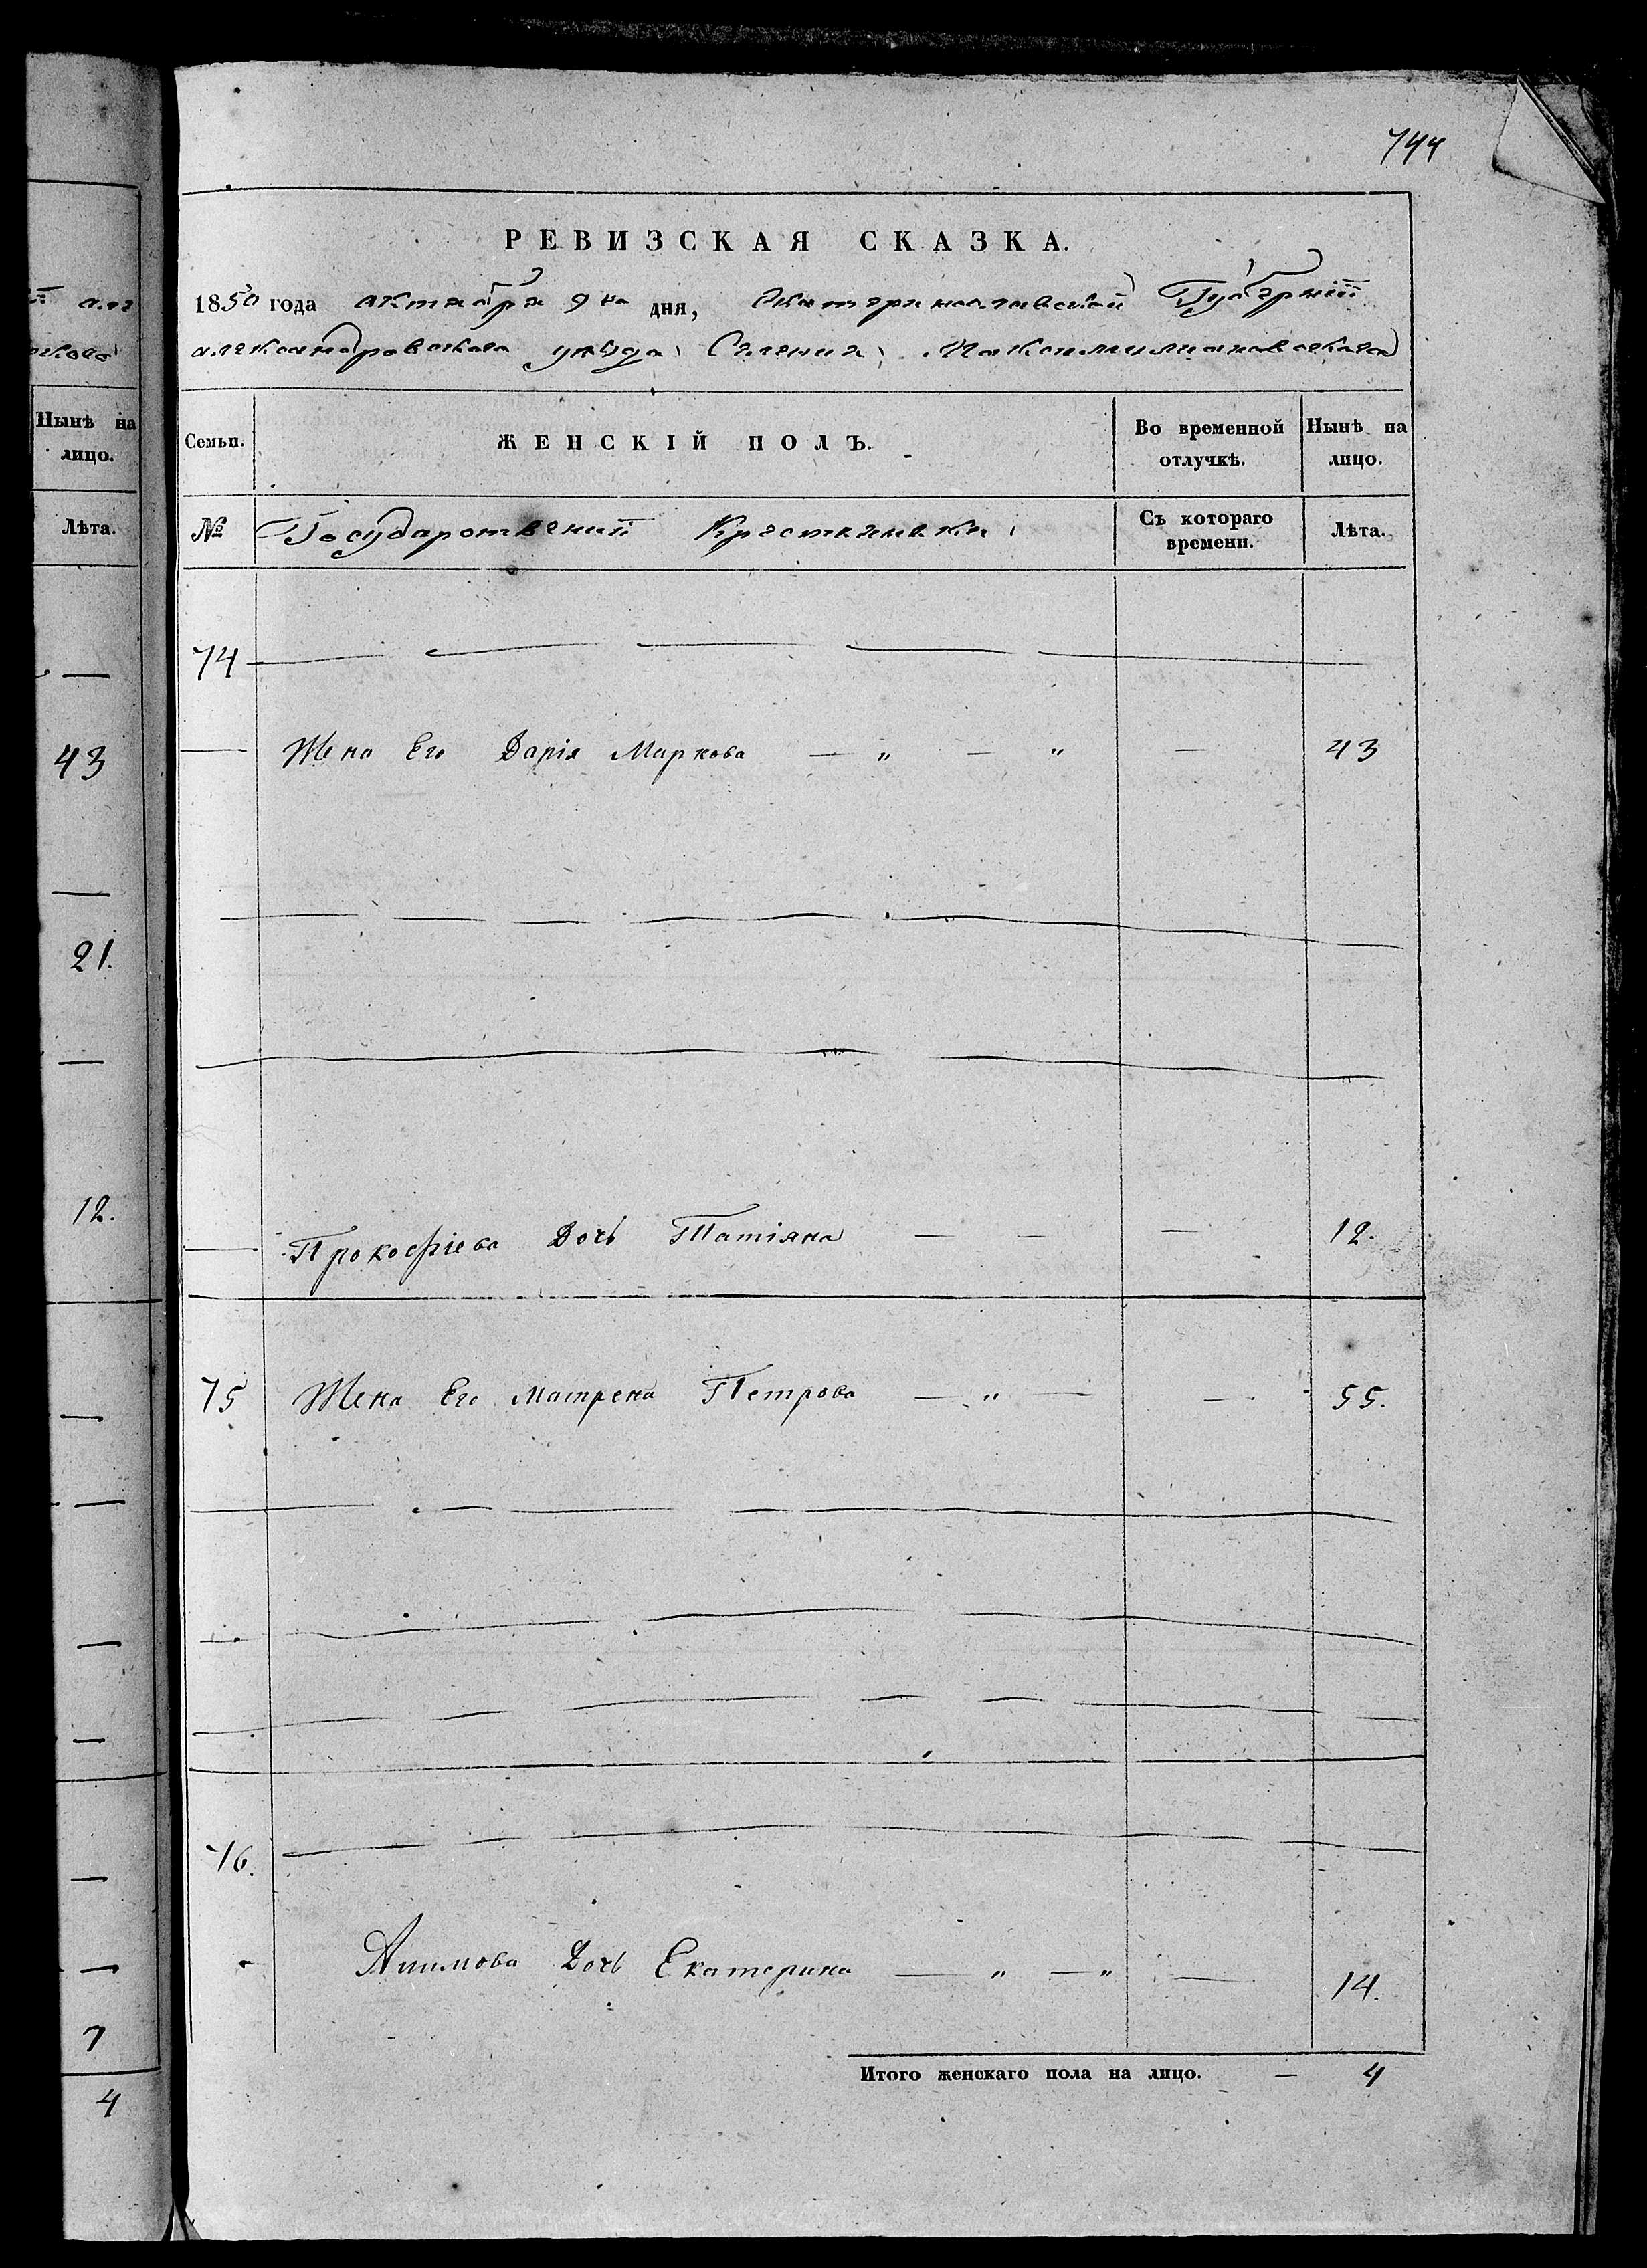 744
РЕВИЗСКАЯ СКАЗКА.
1850 года октября 9го дня, Екатеринославской Губерніи
александровскаго уѣзда Селения Максимилиановскаго
Семьи. ЖЕНСКІЙ ПОЛЪ. Во временной отлучкѣ. Нынѣ на лицо.
№ Государственнii Крестьянки Съ котораго времени. Лѣта.
74
— Жена Его Дарія Маркова — „ — „ — 43
— Прокофіева Дочь Татіяна — — — 12.
75 Жена Его Матрена Петрова — „ — — 55.
76.
- Дочь Екатерина — „ — „ — 14.
Итого женскаго пола на лицо. — 4
Нынѣ на
лицо.
Лѣта.
—
43
—
21.
—
12.
—
—
—
—
—
—
7
4